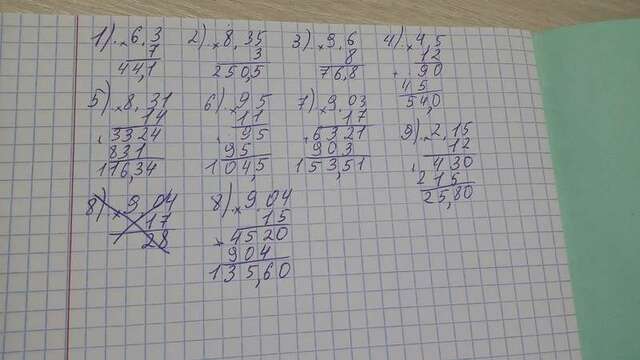 1) ×6,3 2) ×8,35 3) ×9,6 4) ×4,5
7 3 8 12
44,1 250,5 76,8 90
45
54,0
5) ×8,31 6) ×9,5 7) ×9,03 9) ×2,15
14 11 17 12
3324 95 6321 430
831 95 903 215
116,34 104,5 153,51 25,80
8) ×9,04 8) ×9 04
17 15
28 4520
904
135,60